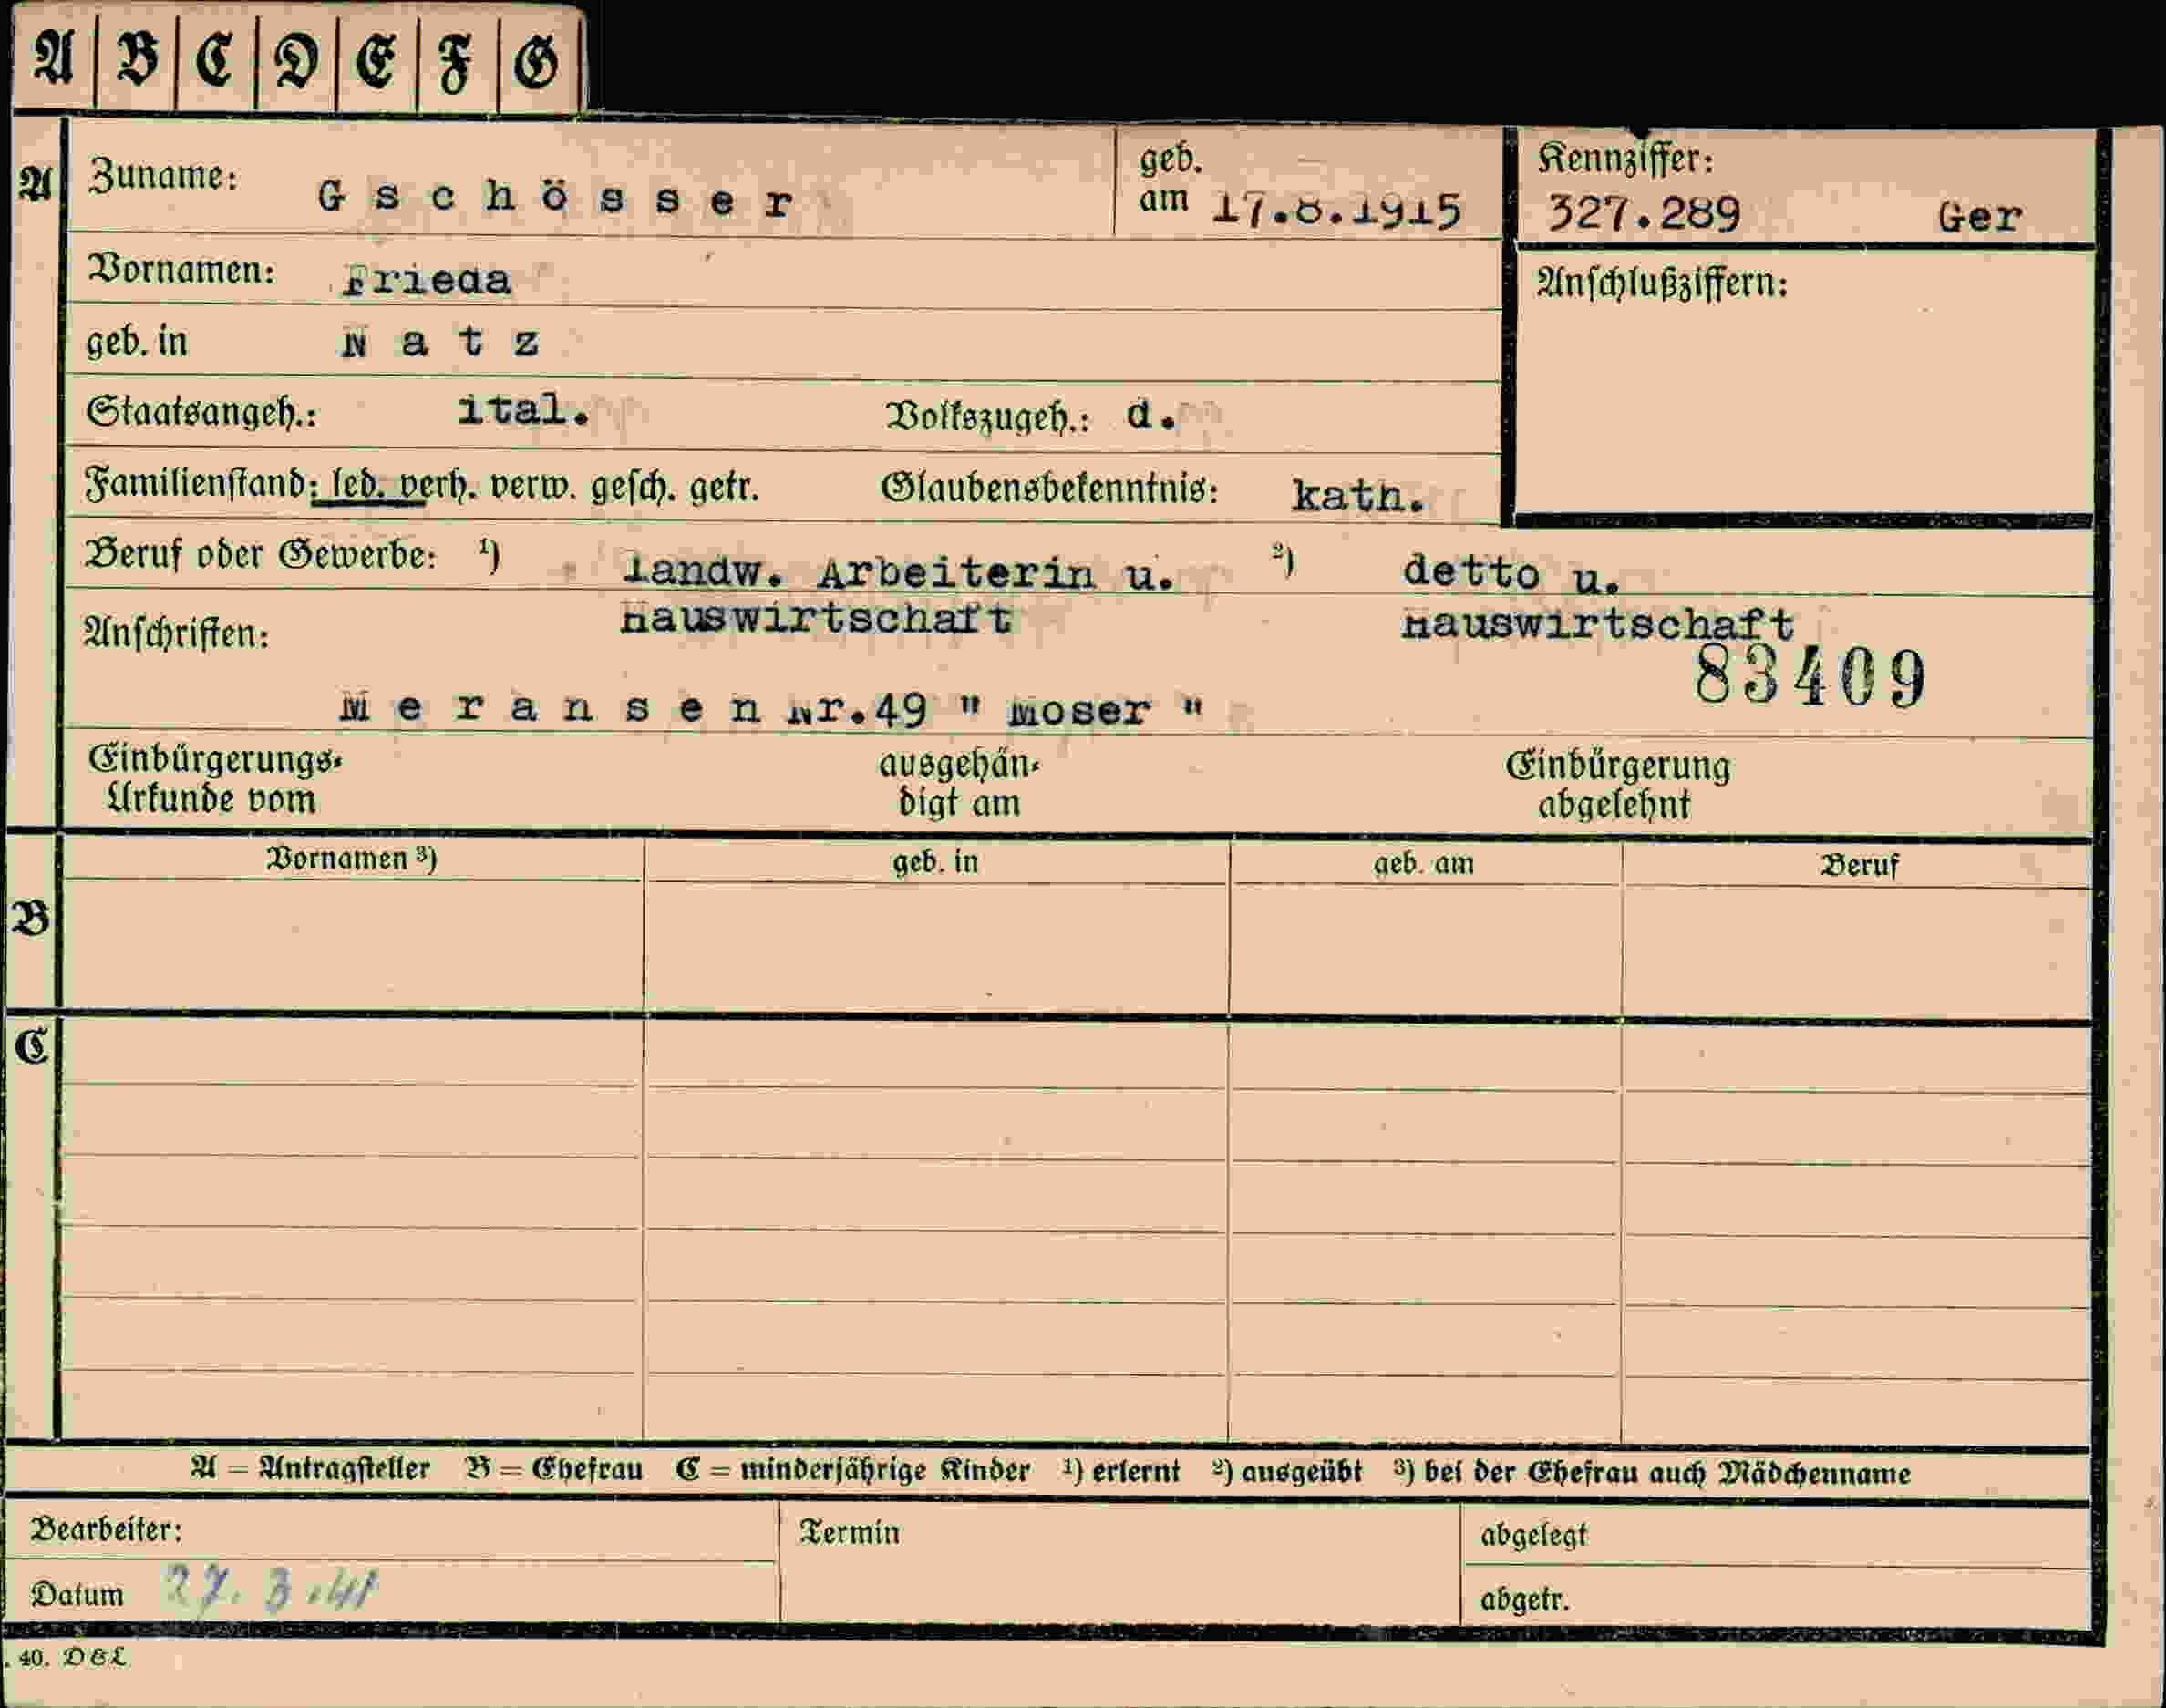 A B C D E F G
A Zuname: Gschösser geb. am 17.8.1915 Kennziffer: 327.289 Ger
Vornamen: Frieda Anschlußziffern:
geb. in Natz
Staatsangeh.: ital. Volkszugeh.: d.
Familienstand: led. verh. verw. gesch. getr. Glaubensbekenntnis: kath.
Beruf oder Gewerbe: ¹) landw. Arbeiterin u. ²) detto u.
Hauswirtschaft Hauswirtschaft
Anschriften:
83409
Meransen Nr.49 " Moser "
Einbürgerungs- ausgehän- Einbürgerung
Urkunde vom digt am abgelehnt
Vornamen ³) geb. in geb. am Beruf
B
C
A = Antragsteller B = Ehefrau C = minderjährige Kinder ¹) erlernt ²) ausgeübt ³) bei der Ehefrau auch Mädchenname
Bearbeiter: Termin abgelegt
Datum 27.3.41 abgetr.
. 40. D&L